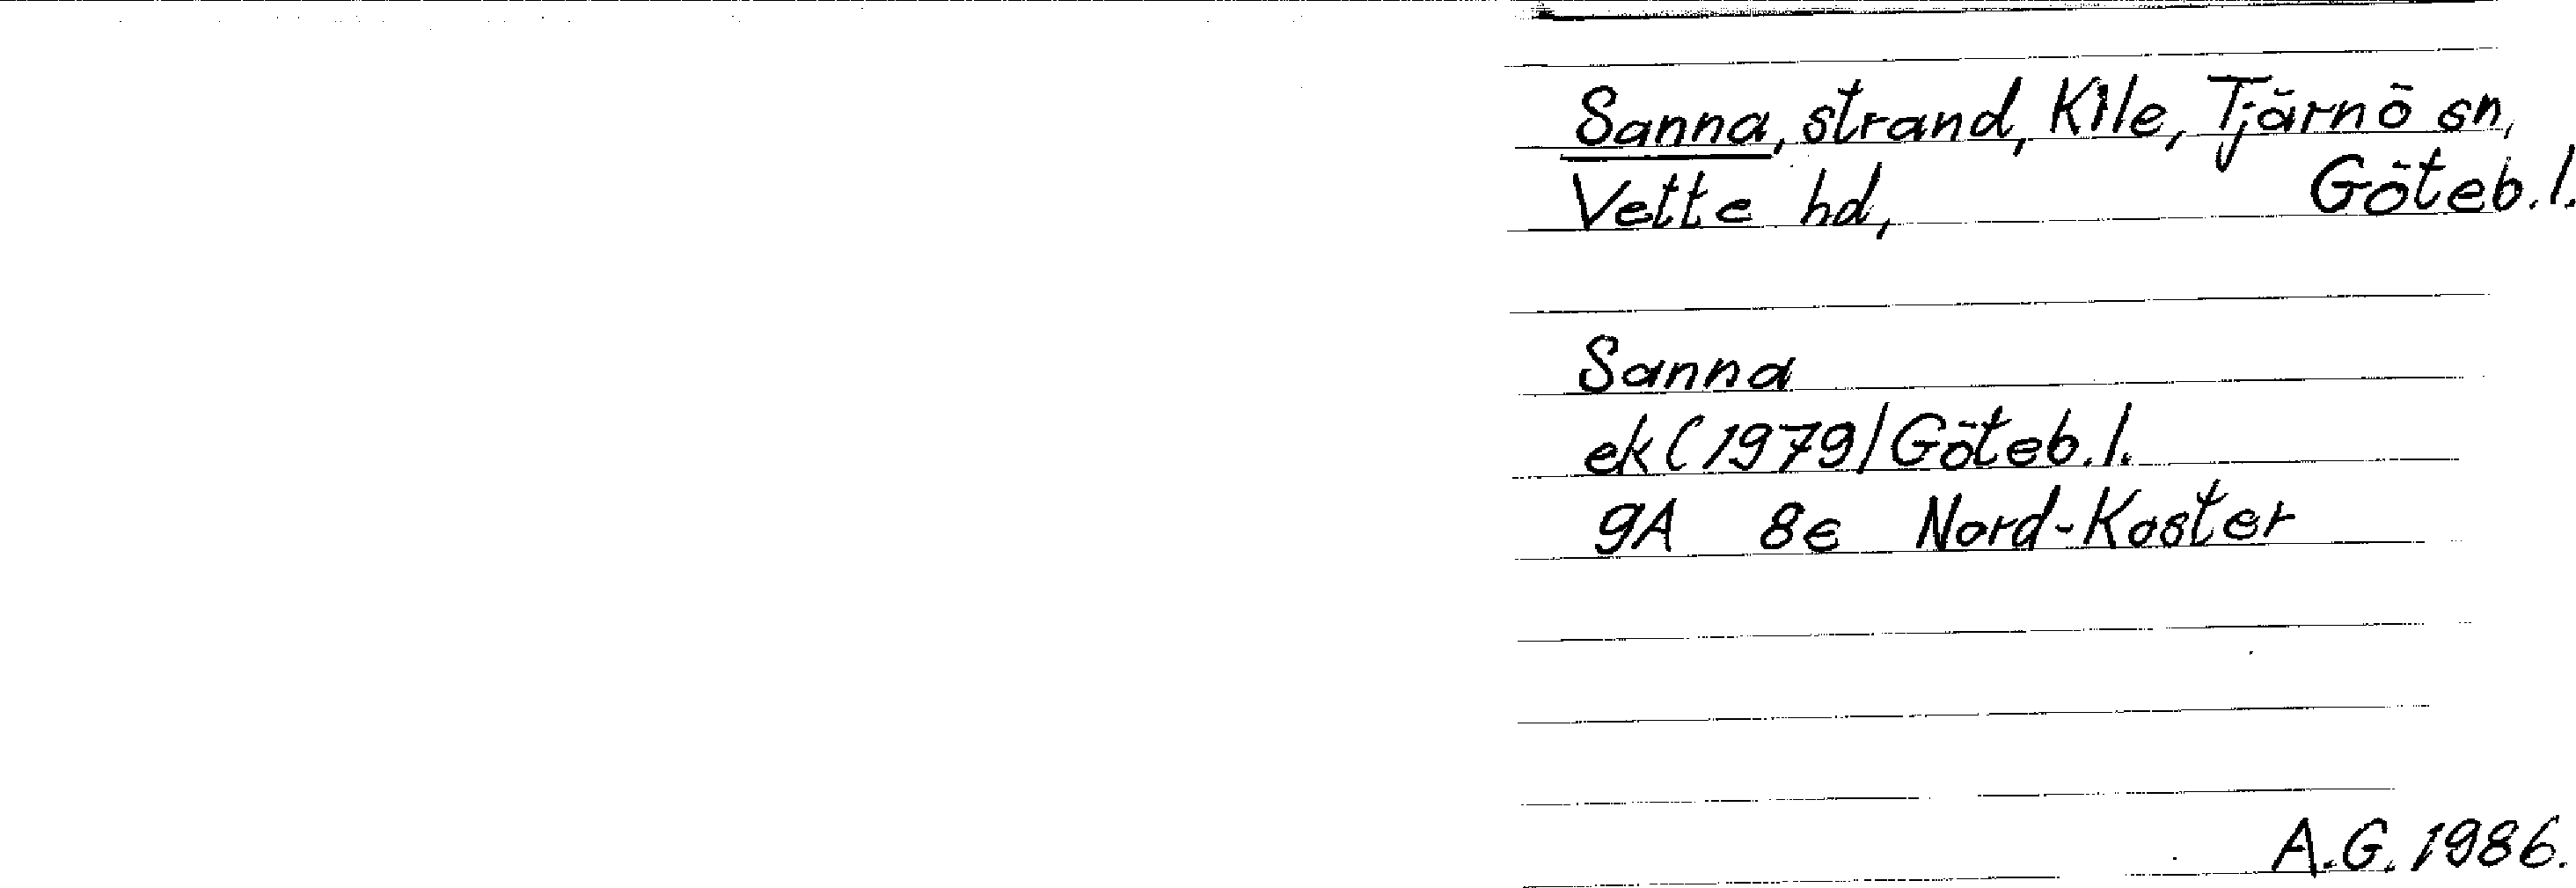 Sanna, strand, Kile, Tjärnö sn,
Vette hd, Göteb. l.
Sanna
ek (1979) Göteb. l.
9A 8e Nord-Koster
A.G. 1986.